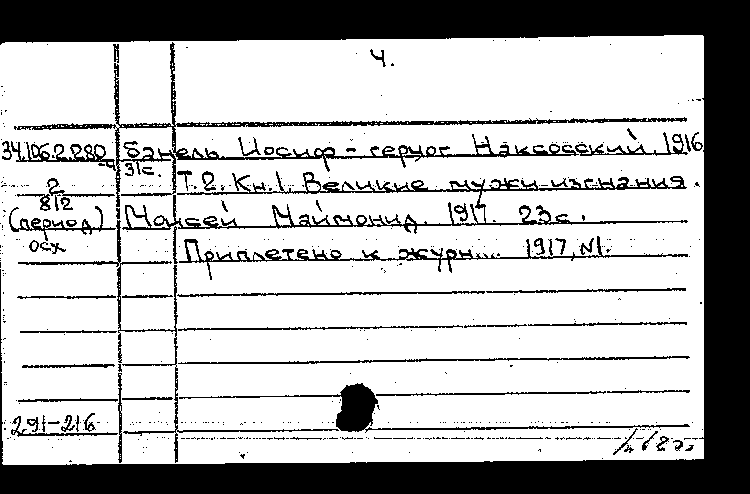 4.
34.106.2.280 банель Иосиф - герцог Наксосский. 1916
31с. Т.2. Кн.1. Великие мужи изгнания.
2
8/2
(период) Моисей Маймонид. 1917. 23с.
осх Приплетено к журн.... 1917, №1.
291-216